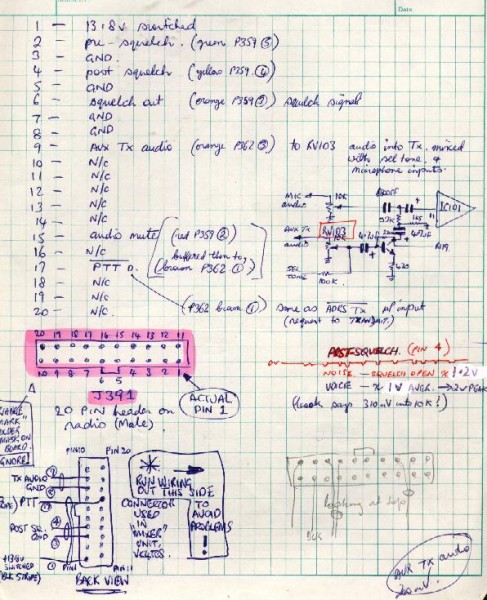 Date
1 - 13.8V switched
2 - pre-squelch. (green P359 ③)
3 - GND.
4 - post squelch (yellow P359 ④)
5 - GND
6 - squelch out (orange P359 ) squelch signal
7 - GND
8 - GND
9 - AUX Tx audio (orange P362 ③) to RV103 audio into Tx. mixed
with sel tone &
microphone inputs.
10 - N/C
11 - N/C
12 - N/C
13 - N/C
14 - N/C
15 - audio mute (red P359 ②)
16 - N/C buffered then to
17 - PTT (brown P362 ①)
18 - N/C
19 - N/C (P362 brown ①) same as TX μP input
20 - N/C (request to TRANSMIT)
MIC audio
10K
AUX TX audio
RV103
10K
SEL TONE
100K
IC101
47μF
20 19 18 17 16 15 14 13 12 11
10 9 8 7 6 5 4 3 2 1
J391
20 PIN header on
radio (Male).
ACTUAL
PIN 1
POST SQUELCH (PIN 4)
NOISE - SQUELCH OPEN ≈ 1.2V
VOICE - ≈ 1V AVGE. → 2V PEAK
(book says 310mV into 10K!)
BOARD.
IGNORE!
PIN10 PIN 20
TX AUDIO
GND
PTT
POST SQ.
GND
+13.8V
SWITCHED
PIN1 PIN11
BACK VIEW
RUN WIRING
OUT THIS SIDE
TO
AVOID
PROBLEMS
!
CONNECTOR
USED
IN
"MIXER"
UNIT.
Looking at
AUX TX audio